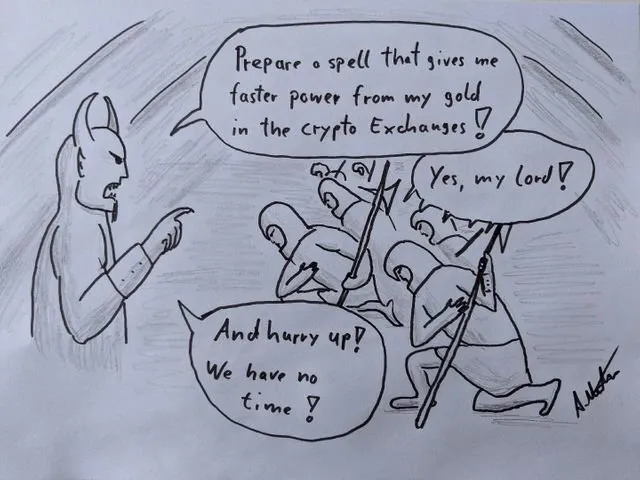 Prepare a spell that gives me
faster power from my gold
in the Crypto Exchanges!
Yes, my lord!
And hurry up!
We have no
time!